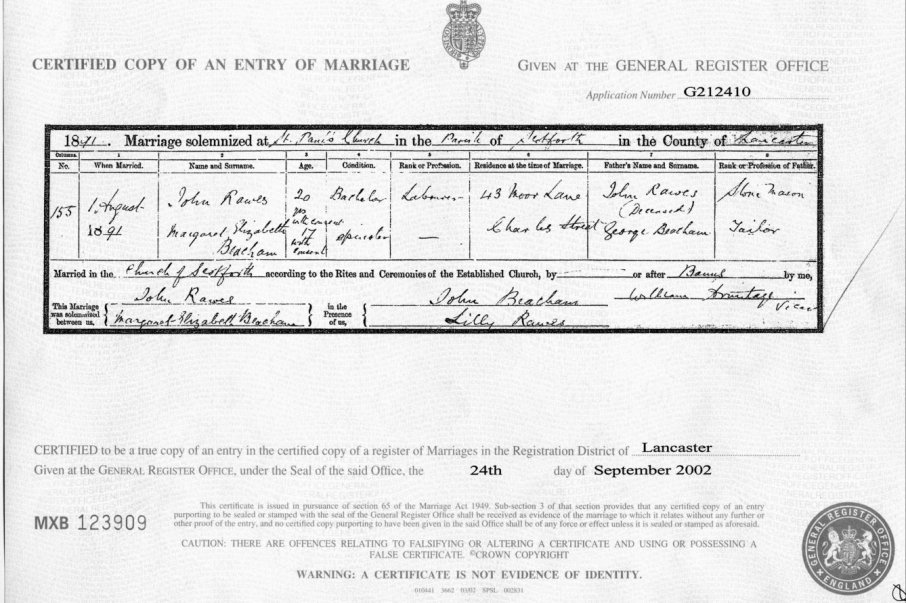 CERTIFIED COPY OF AN ENTRY OF MARRIAGE
GIVEN AT THE GENERAL REGISTER OFFICE
Application Number G212410
1891. Marriage solemnized at St. Paul's Church in the Parish of Scotforth in the County of Lancaster
Columns 1 2 3 4 5 6 7 8
No. When Married. Name and Surname. Age. Condition. Rank or Profession. Residence at the time of Marriage. Father's Name and Surname. Rank or Profession of Father.
155 1. August 1891 John Rawes 20 yrs with consent Bachelor Labourer 43 Moor Lane John Rawes (Deceased) Stone Mason
Margaret Elizabeth Beacham 17 with consent Spinster — Charles Street George Beacham Tailor
Married in the Church of Scotforth according to the Rites and Ceremonies of the Established Church, by or after Banns by me,
This Marriage was solemnized between us, John Rawes
Margaret Elizabeth Beacham
in the Presence of us, John Beacham
Lilly Rawes
William Armitage Vicar
CERTIFIED to be a true copy of an entry in the certified copy of a register of Marriages in the Registration District of Lancaster
Given at the GENERAL REGISTER OFFICE, under the Seal of the said Office, the 24th day of September 2002
MXB 123909
This certificate is issued in pursuance of section 65 of the Marriage Act 1949. Sub-section 3 of that section provides that any certified copy of an entry
purporting to be sealed or stamped with the seal of the General Register Office shall be received as evidence of the marriage to which it relates without any further or
other proof of the entry, and no certified copy purporting to have been given in the said Office shall be of any force or effect unless it is sealed or stamped as aforesaid.
CAUTION: THERE ARE OFFENCES RELATING TO FALSIFYING OR ALTERING A CERTIFICATE AND USING OR POSSESSING A
FALSE CERTIFICATE. ©CROWN COPYRIGHT
WARNING: A CERTIFICATE IS NOT EVIDENCE OF IDENTITY.
010441 3662 03/02 SPSL 002831
GENERAL REGISTER OFFICE
ENGLAND